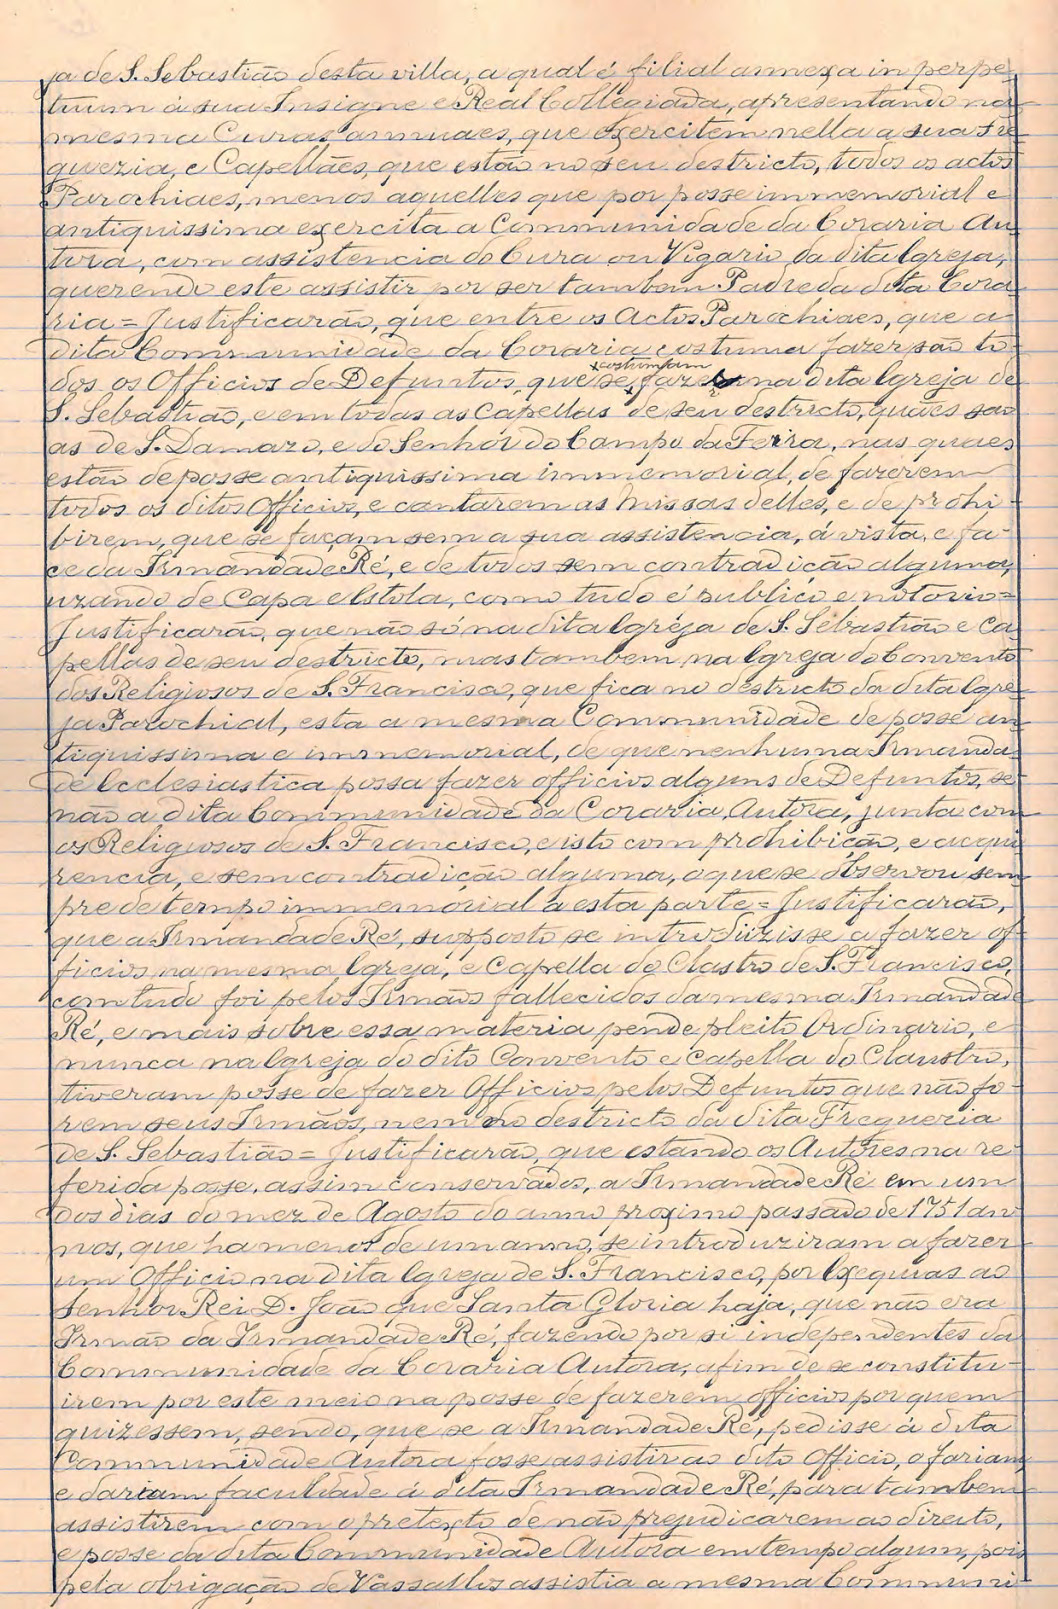 ja de S. Sebastião desta villa, a qual é filial annexa in perpe-
tuum á sua Insigne e Real Collegiada, apresentando na
mesma Curas annuaes, que exercitem nella a sua Fre
guezia, e Capellães, que estão no seu destricto, todos os actos
Parochiaes, menos aquelles que por posse immemorial e
antiquissima exercita a Communidade da Coraria Au-
tora, com assistencia do Cura ou Vigario da dita Igreja,
querendo este assistir por ser tambem Padre da dita Cora-
ria = Justificarão, que entre os Actos Parochiaes, que a
dita Communidade da Coraria costuma fazer são to-
dos os Officios de Defuntos, que se costumam fazer na dita Igreja de
S. Sebastião, e em todas as Capellas de seu destricto, quaes são
as de S. Damazo, e do Senhor do Campo da Feira, nas quaes
estão de posse antiquissima immemorial, de fazerem
todos os ditos Officios, e cantarem as Missas delles, e de prohi-
birem, que se façam sem a sua assistencia, á vista, e fa-
ce da Irmandade Ré, e de todos sem contradição alguma,
uzando de Capa e Estola, como tudo é publico e notorio =
Justificarão, que não só na dita Igreja de S. Sebastião e Ca-
pellas de seu destricto, mas tambem na Igreja do Convento
dos Religiosos de S. Francisco, que fica no destricto da dita Igre-
ja Parochial, esta a mesma Communidade de posse an-
tiquissima e immemorial, de que nenhuma Irmanda-
de Ecclesiastica possa fazer officios alguns de Defuntos, se-
não a dita Communidade da Coraria, Autora, junta com
os Religiosos de S. Francisco, e isto com prohibição, e acqui
rencia, e sem contradição alguma, o que se observou sem-
pre de tempo immemorial a esta parte = Justificarão,
que a Irmandade Ré, supposto se introduzisse a fazer of-
ficios na mesma Igreja, e Capella do Clastro de S. Francisco,
comtudo foi pelos Irmãos fallecidos da mesma Irmandade
Ré, e mais sobre essa materia pende pleito Ordinario, e
nunca na Igreja do dito Convento e Capella do Claustro,
tiveram posse de fazer Officios pelos Defuntos que não fo-
rem seus Irmãos, nem no destricto da dita Freguezia
de S. Sebastião = Justificarão, que estando os Autores na re-
ferida posse, assim conservados, a Irmandade Ré em um
dos dias do mez de Agosto do anno proximo passado de 1751 an-
nos, que ha menos de um anno, se introduziram a fazer
um Officio na dita Igreja de S. Francisco, por Exequias ao
Senhor Rei D. João que Santa Gloria haja, que não era
Irmão da Irmandade Ré, fazendo por si independentes da
Communidade da Coraria Autora, afim de se constitu-
irem por este meio na posse de fazerem officios por quem
quizessem, sendo, que se a Irmandade Ré, pedisse á dita
Communidade Autora fosse assistir ao dito Officio, o fariam,
e dariam faculdade á dita Irmandade Ré, para tambem
assistirem com o pretexto de não prejudicarem ao direito,
e posse da dita Communidade Autora em tempo algum, pois
pela obrigação de Vassallos assistia a mesma Communi-